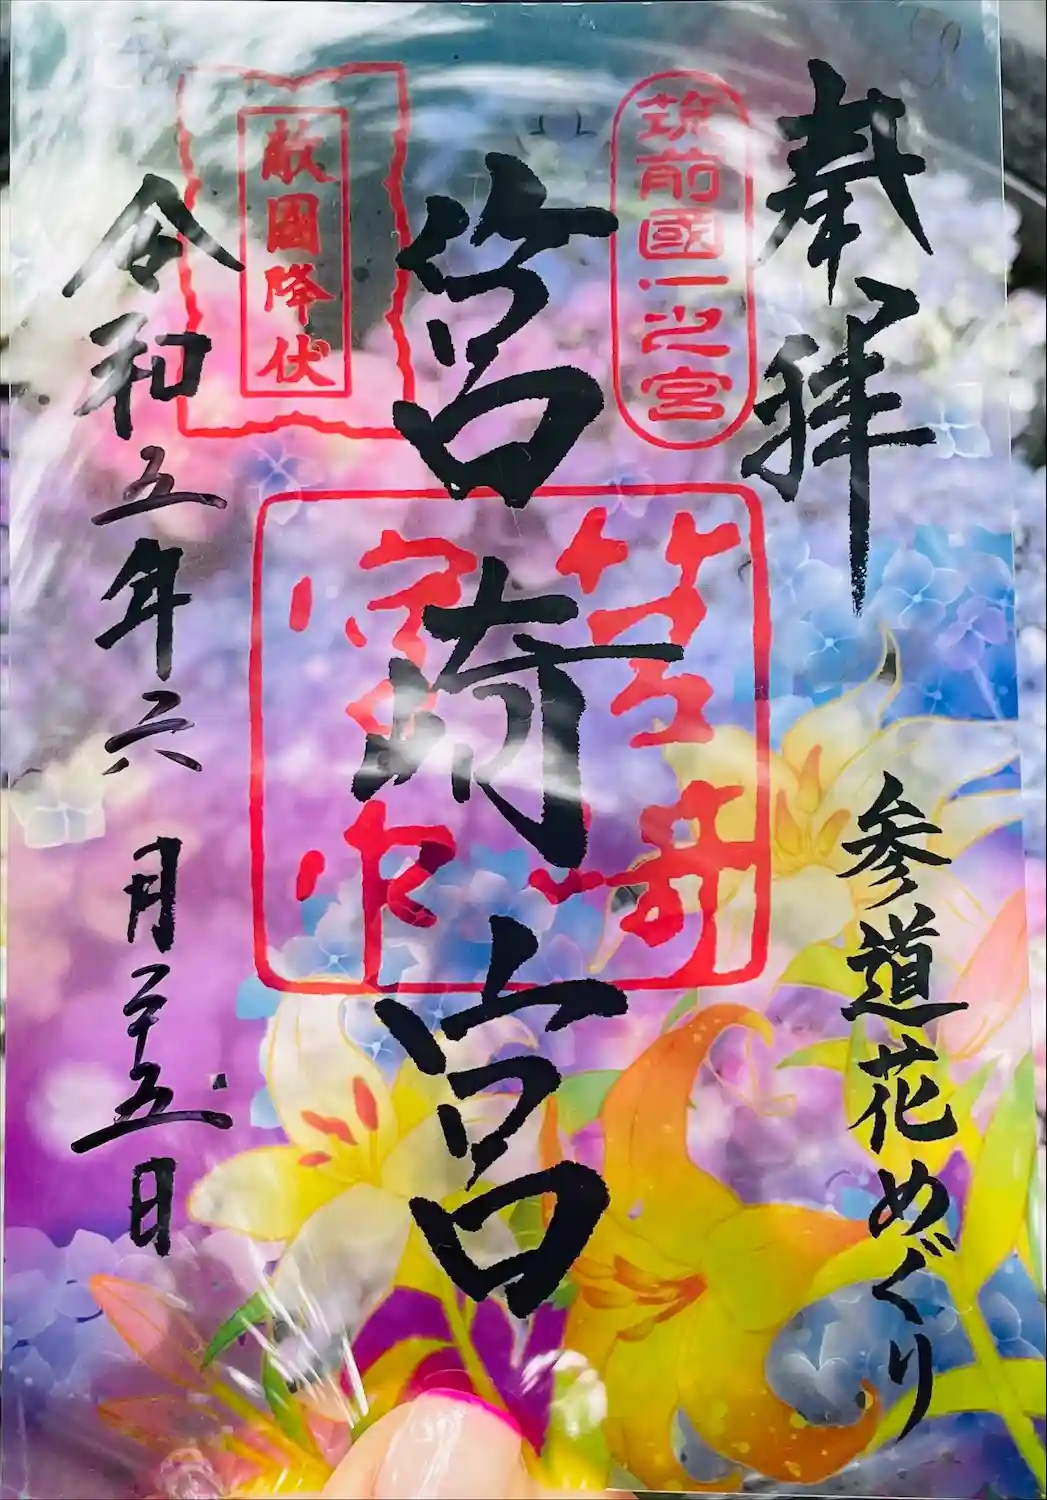 奉拝
参道花めぐり
筑前國一之宮
筥崎宮
敵國降伏
令和五年六月二十五日